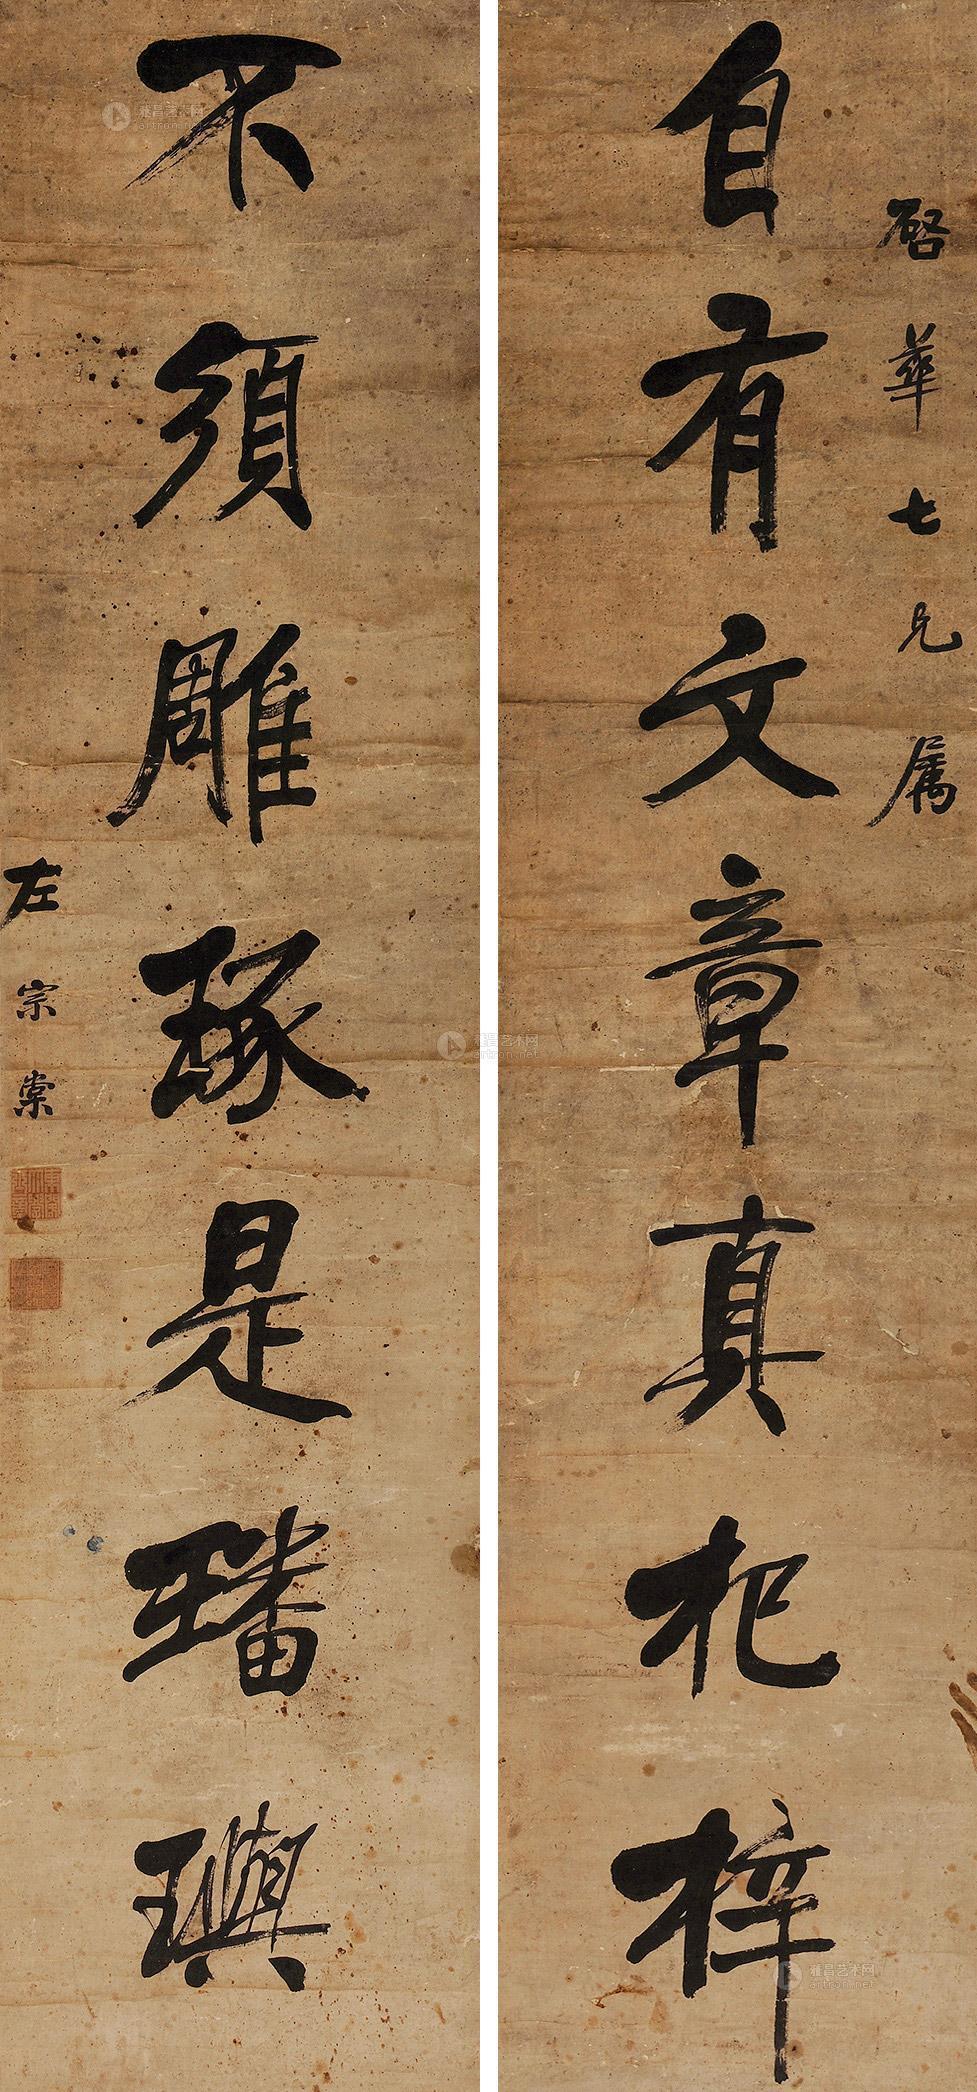 啓華七兄属
自有文章真杞梓
不須雕琢是璠璵
左宗棠
雅昌艺术网
artron.net
雅昌艺术网
artron.net
雅昌艺术网
artron.net